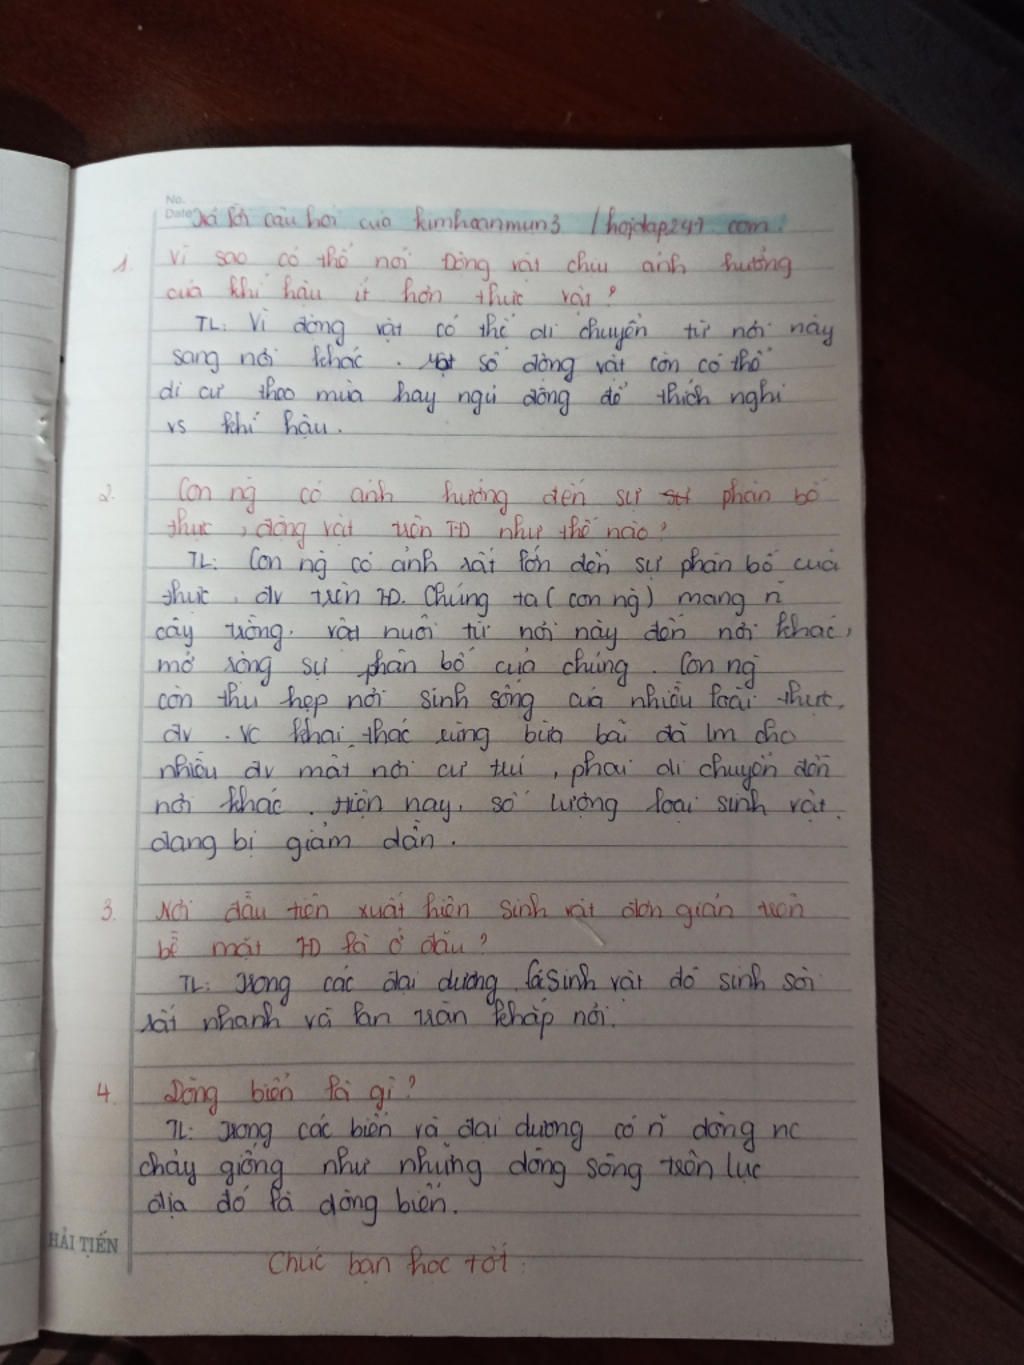 No.
Date Trả lời câu hỏi của kimhoanmun3 /hoidap247.com.
1. Vì sao có thể nói Động vật chịu ảnh hưởng
của khí hậu ít hơn thực vật?
TL: Vì động vật có thể di chuyển từ nơi này
sang nơi khác. Một số động vật còn có thể
di cư theo mùa hay ngủ đông để thích nghi
vs khí hậu.
2. Con ng có ảnh hưởng đến sự phân bố
thực, động vật trên TĐ như thế nào?
TL: Con ng có ảnh rất lớn đến sự phân bố của
thực, đv trên TĐ. Chúng ta (con ng) mang n
cây trồng, vật nuôi từ nơi này đến nơi khác,
mở rộng sự phân bố của chúng. Con ng
còn thu hẹp nơi sinh sống của nhiều loài thực,
đv. Vc khai thác rừng bừa bãi đã lm cho
nhiều đv mất nơi cư trú, phải di chuyển đến
nơi khác. Hiện nay, số lượng loài sinh vật
đang bị giảm dần.
3. Nơi đầu tiên xuất hiện sinh vật đơn giản trên
bề mặt TĐ là ở đâu?
TL: Trong các đại dương, là sinh vật đó sinh sôi
rất nhanh và lan tràn khắp nơi.
4. Dòng biển là gì?
TL: Trong các biển và đại dương có n dòng nc
chảy giống như những dòng sông trên lục
địa đó là dòng biển.
HẢI TIẾN
Chúc bạn học tốt.